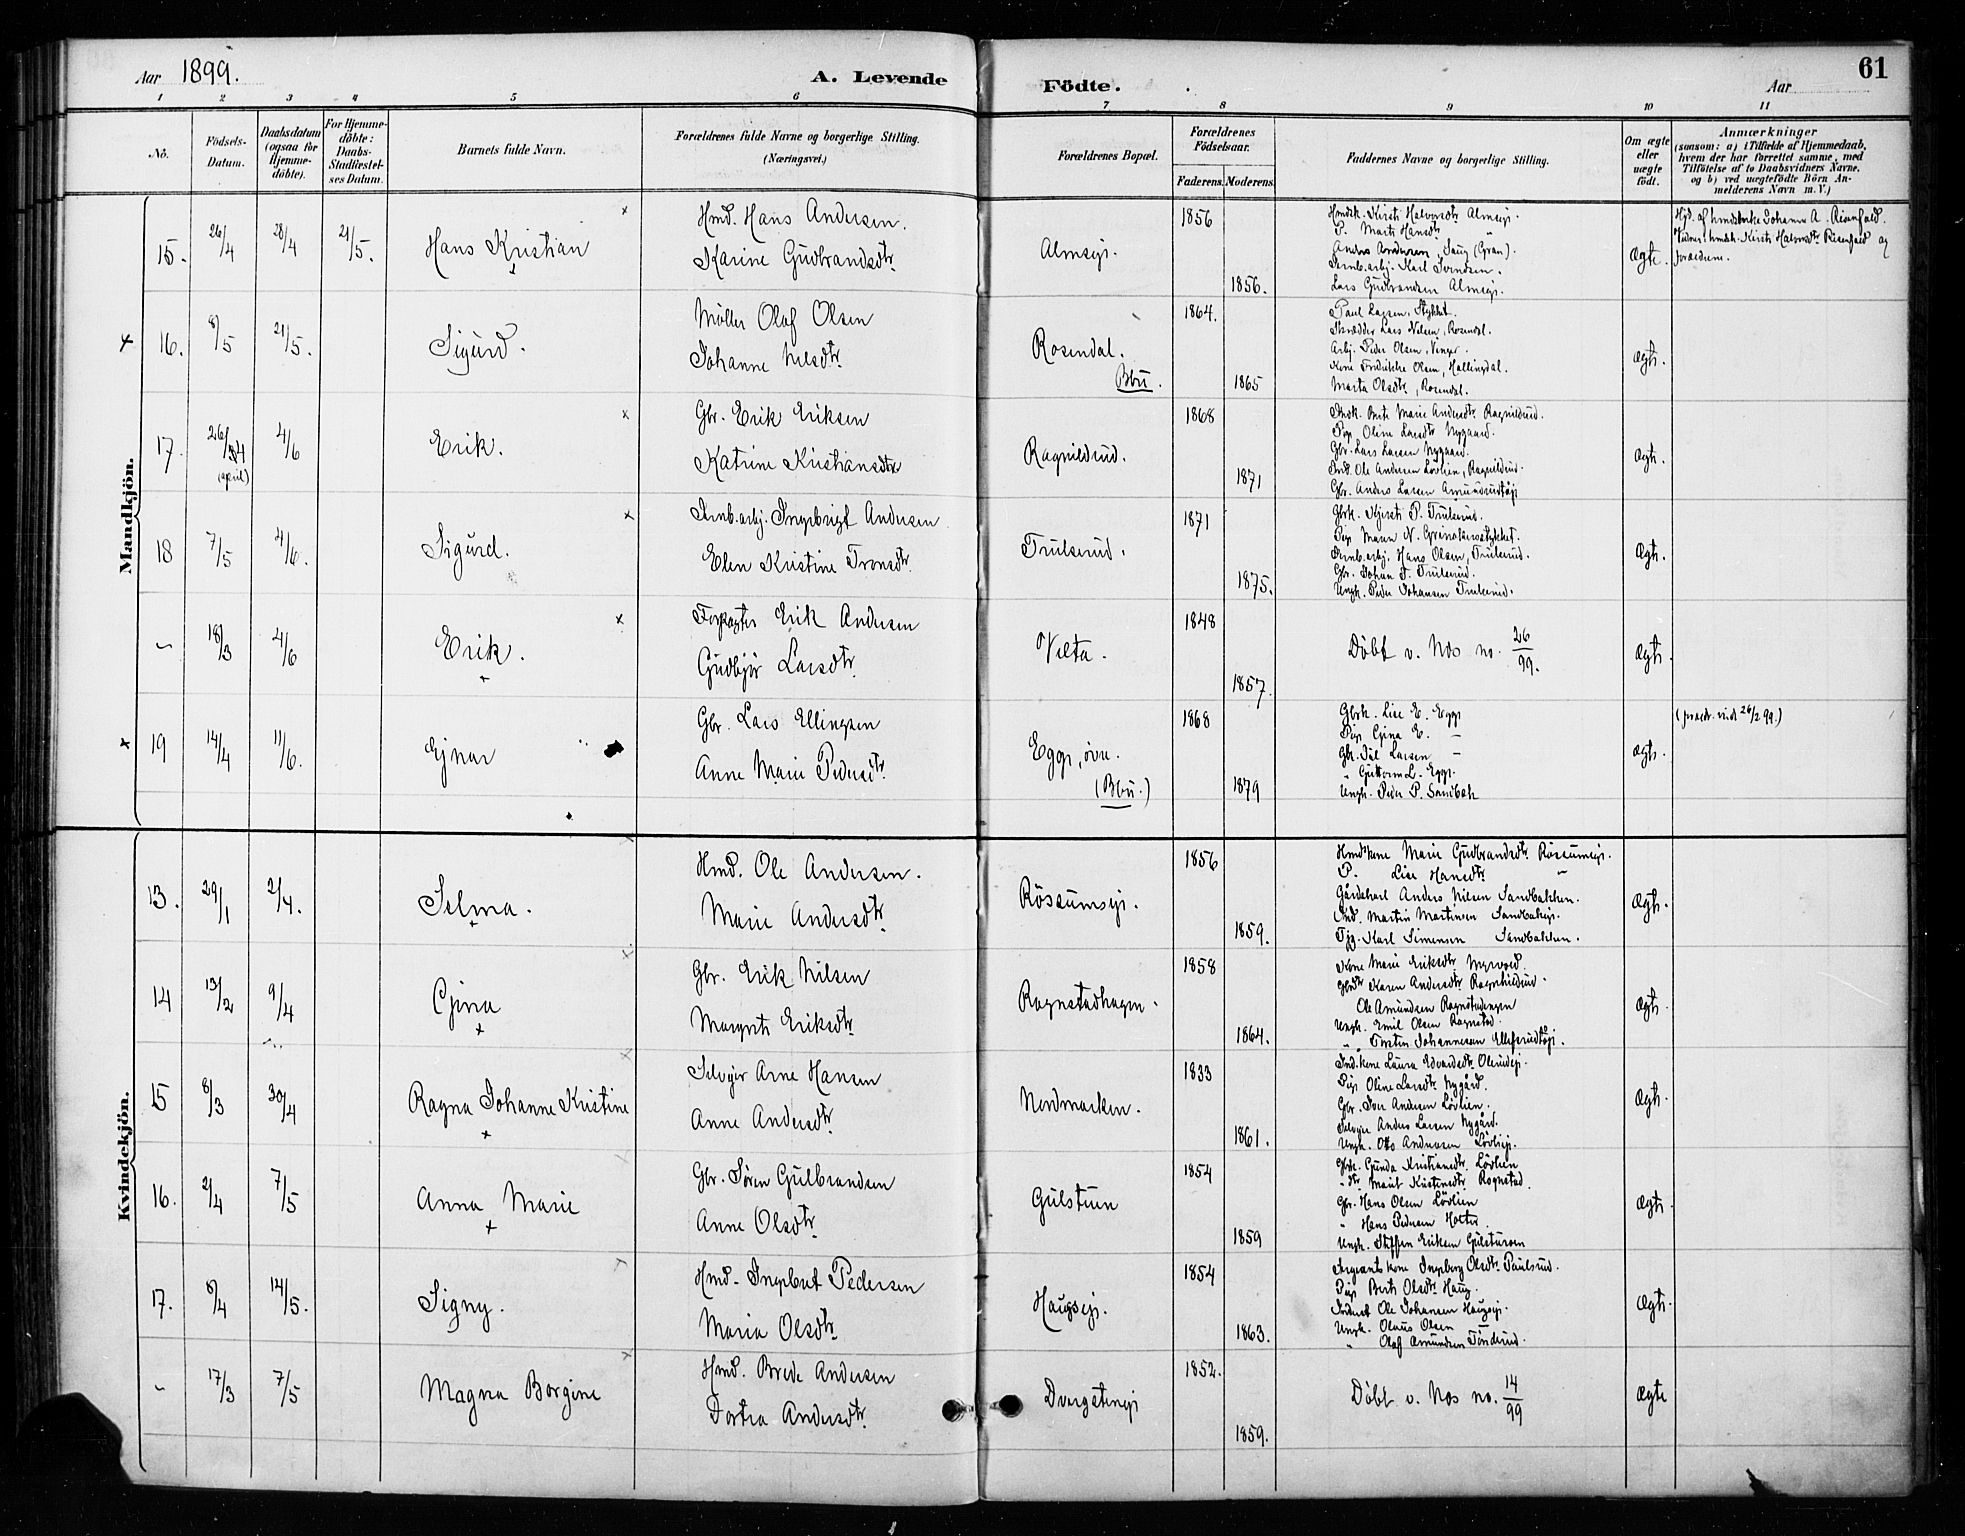 Aar 1899.
A. Levende
Födte.
Aar
61
1 2 3 4 5 6 7 8 9 10 11
No.
Födsels-Datum.
Daabsdatum (ogsaa for Hjemme-döbte).
For Hjemme-döbte: Daabs-Stadfæstel-ses Datum.
Barnets fulde Navn.
Forældrenes fulde Navne og borgerlige Stilling. (Næringsvei.)
Forældrenes Bopæl.
Forældrenes Födselsaar.
Faderens. Moderens.
Faddernes Navne og borgerlige Stilling.
Om ægte eller uægte födt.
Anmærkninger
(saasom: a) i Tilfælde af Hjemmedaab, hvem der har forrettet samme, med Tilföielse af to Daabsvidners Navne, og b) ved uægtefödte Börn An-melderens Navn m. V.)
Mandkjön.
15. 26/4 28/4 21/5. Hans Kristian
Hmd. Hans Andersen.
Karine Gudbrandsdtr
Almsejr.
1856
1856.
P. Marte Hansdtr
Jernb.arbj. Karl Svendsen.
Lars Gudbrandsen Almsejr.
Ægte.
16. 8/5 21/5. Sigurd.
Møller Olaf Olsen
Johanne Nilsdtr
Rosendal.
Bbu.
1864.
1865
Paul Larsen, Stykket.
Skrædder Lars Nilsen, Rosendal.
Arbj. Peder Olsen, Vinger.
Kone Fredrikke Olsen, Hallingdal.
Marta Olsdtr, Rosendal.
Ægte.
17. 26/4 (april) 4/6 Erik.
Gbr. Erik Eriksen
Katrine Kristiansdtr
Ragnildrud.
1868
1871
Berte Marie Andersdtr Ragnildrud.
Pige Oline Larsdtr Nygaard.
Gbr. Lars Larsen Nygaard.
Ind. Ole Andersen Løvlien, Ragnildrud.
Gbr. Anders Larsen
Ægte.
18 7/5 4/6. Sigurd.
Jernb.arbj. Ingebrigt Andersen
Elen Kristine Tronsdtr.
Trulserud.
1871
1875.
Gbrk. Kjersti P. Trulserud.
Jernb.arbj. Hans Olsen, Trulserud.
Gbr. Johan T. Trulserud.
Ungk. Peder Johansen Trulserud.
Ægte.
~ 18/3 4/6 Erik.
Erik Andersen
Gudbjør Larsdtr.
Velta.
1848
1857.
Döbt v. Næs no. 26/99.
Ægte.
19 14/4 11/6. Ejnar
Gbr. Lars Ellingsen
Anne Marie Pedersdtr.
Egge, øvre.
(Bbu.)
1868
1879
Gbrk. Lise E. Egge
Pige Gina E. –
Gbr. Jul Larsen –
" Guttorm L. Egge.
Ungk. Peder P. Sandbæk
Ægte.
Kvindekjön.
13. 29/1 2/4. Selma.
Hmd. Ole Andersen.
Marie Andersdtr.
Rössumsejr.
1856
1859.
Hmd'kone Marie Gudbrandsdtr Rössumsejr.
P. Lise Hansdtr "
Gårdskarl Anders Nilsen Sandbakken.
Ind. Martin Martinsen
Karl Simensen Sandbakken.
Ægte.
14 13/2 9/4 Gina
Gbr. Erik Nilsen
Margrete Eriksdtr.
Ragnstadhagen.
1858
1864.
Kone Marie Eriksdtr Myrvold.
Karen Andersdtr Ragnhildrud.
Ole Amundsen
Ungk. Emil Olsen Rognstad.
Torsten Johannessen
Ægte.
15 8/3 30/4 Ragna Johanne Kristine
Selvejer Arne Hansen
Anne Andersdtr.
Nordmarken.
1833
1861.
Ind.kone Laura Edvardsdtr
Pige Oline Larsdtr. Nygård.
Gbr. Iver Andersen Løvlien.
Selvejer Anders Larsen Nygård.
Ungk. Otto Andreasen
Ægte.
16. 2/4 7/5 Anna Marie
Gbr. Søren Gulbrandsen
Anne Olsdtr.
Gulstuen
1854
1859
Gbrk. Gunda Kristiansdtr. Løvlien
Marit Kristensdtr Rognstad.
Gbr. Hans Olsen Løvlien
" Hans Pedersen Holter.
Ungk. Steffen Eriksen Gulstuen
Ægte.
17. 8/4 14/5. Signy.
Hmd. Ingebret Pedersen
Maria Olsdtr.
Haugsejr.
1854
1863.
Sergeants kone Ingeborg Olsdtr. Paulsrud.
Pige Berte Olsdtr Haug.
Inderst Ole Johansen Haugsejr.
Ungk. Olaus Olsen
" Olaf Amundsen
Ægte.
~ 17/3 7/5 Magna Borgine
Hmd. Brede Andersen
Dortea Andersdtr.
1852.
1859.
Döbt v. Næs no. 14/99
Ægte